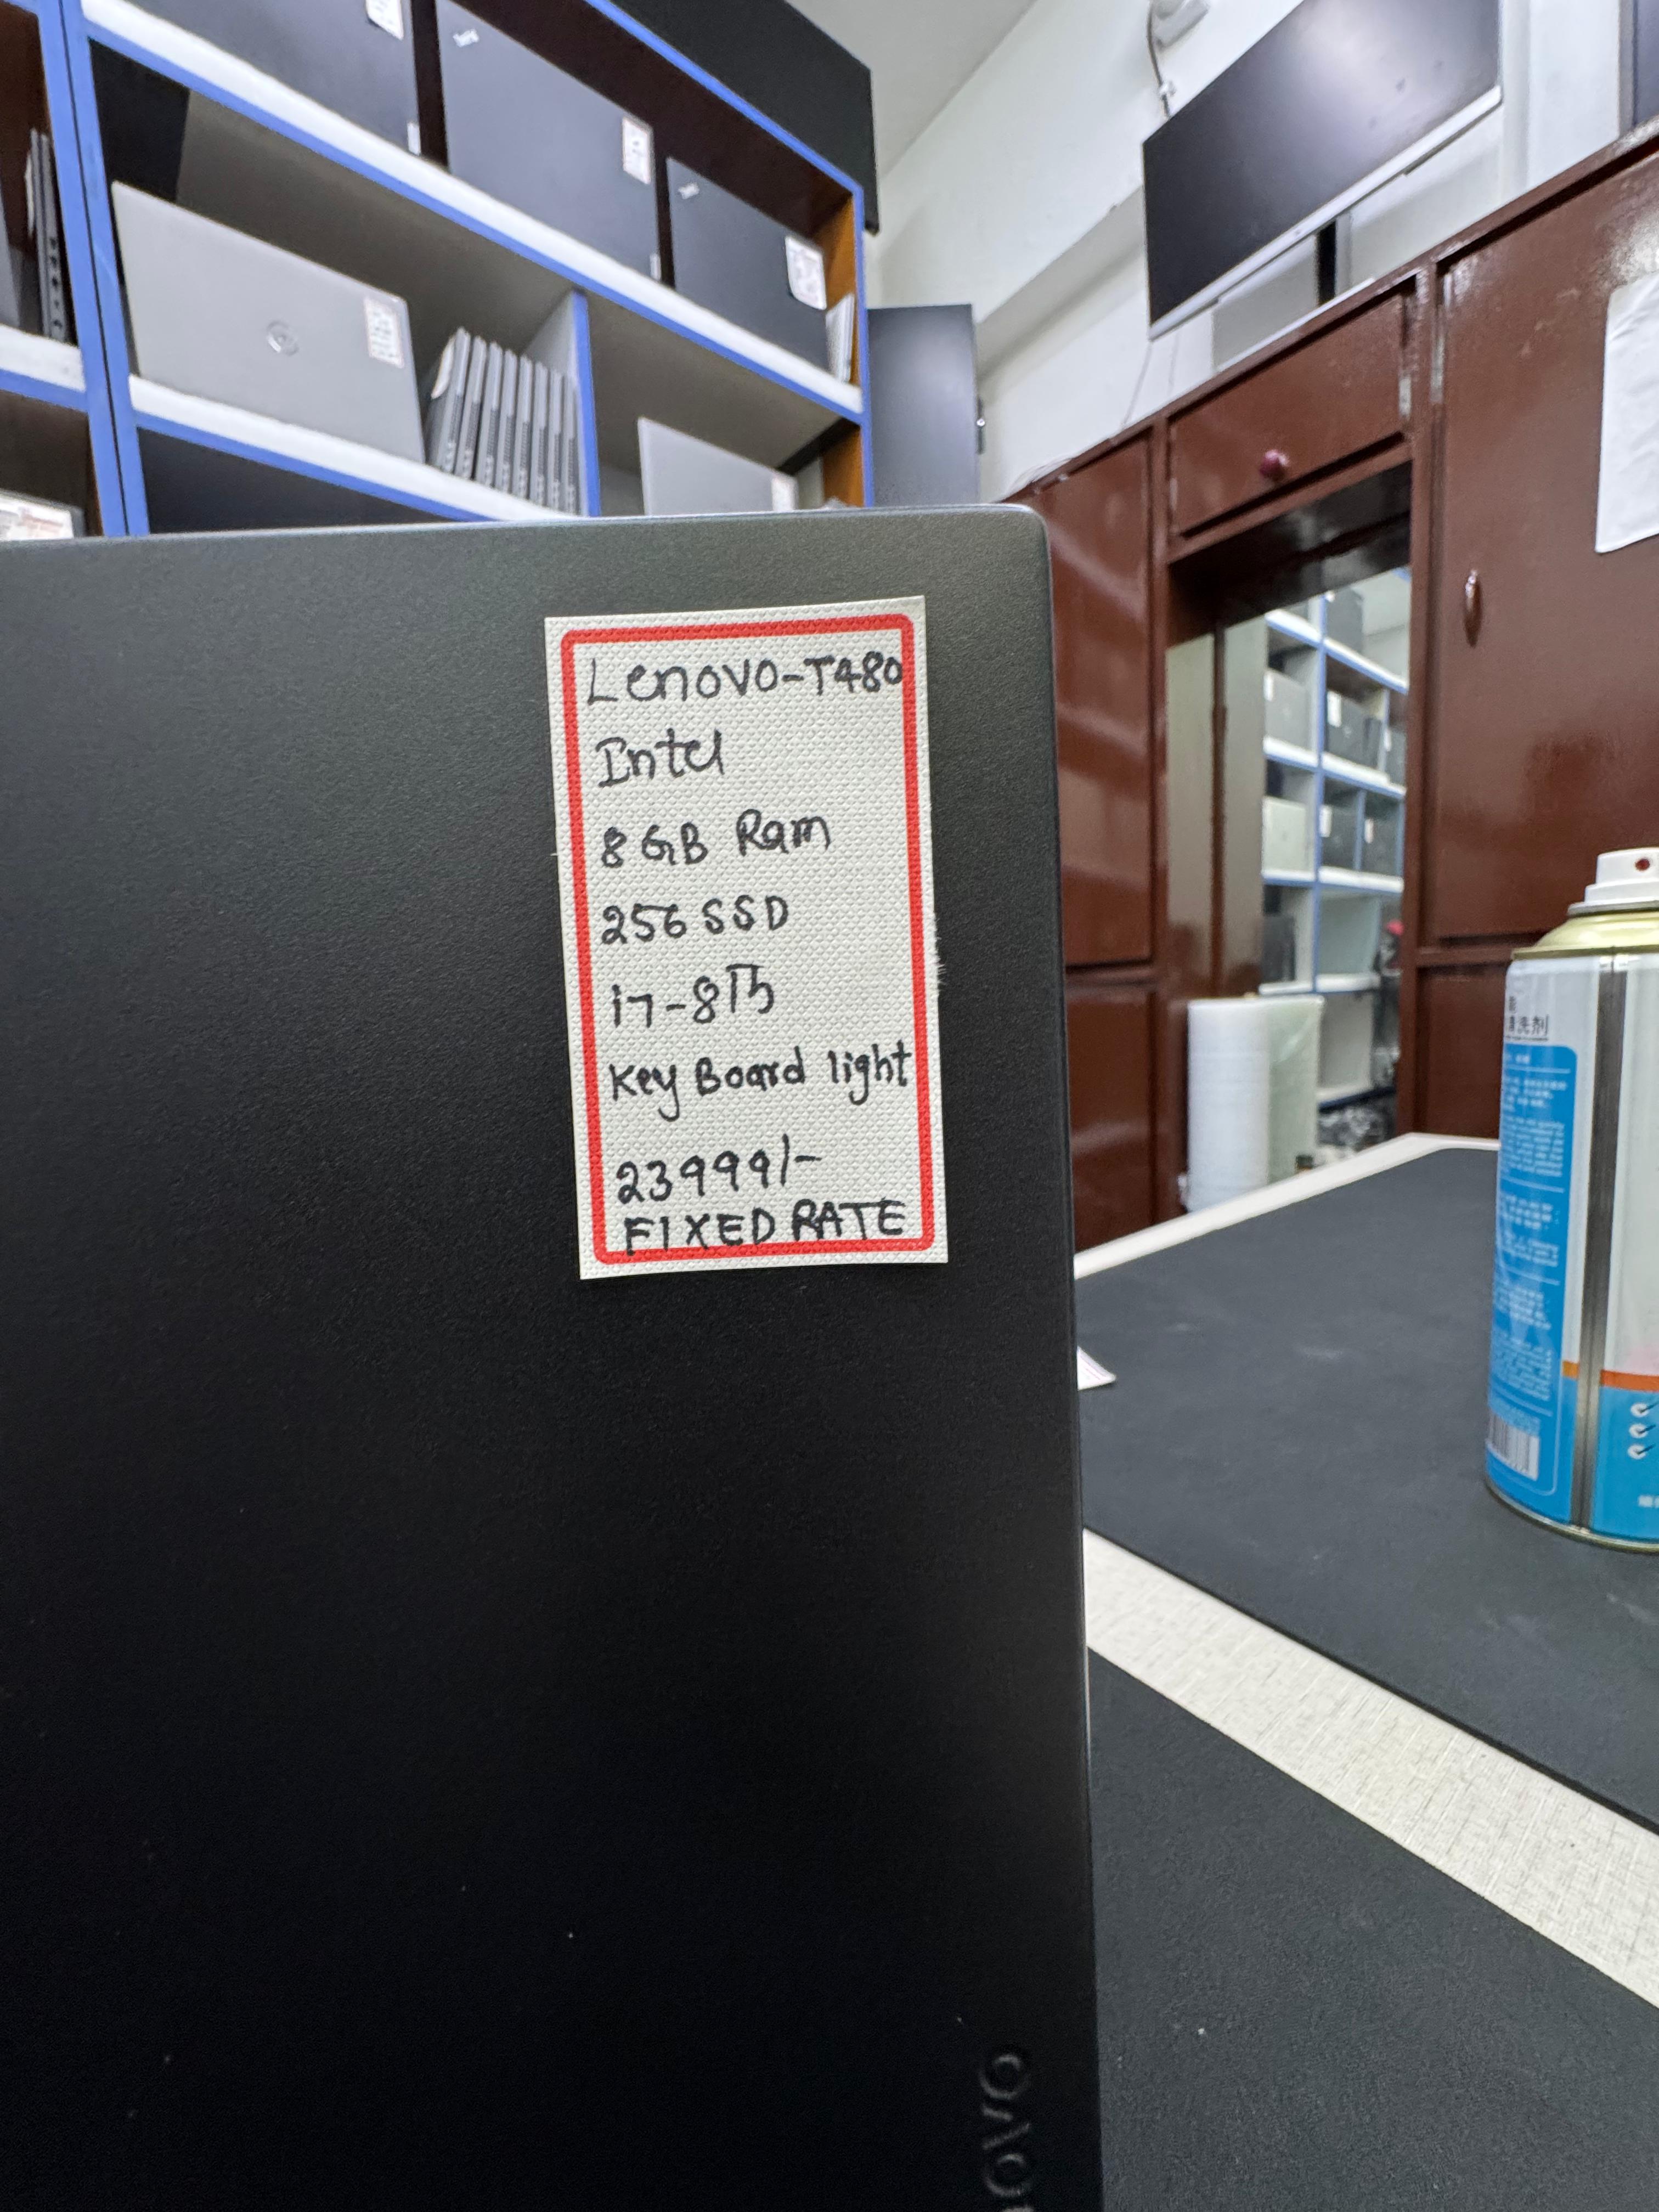 Lenovo-T480
Intel
8 GB Ram
256 SSD
i7-8th
Key Board light
23999/-
FIXED RATE
清洗剂